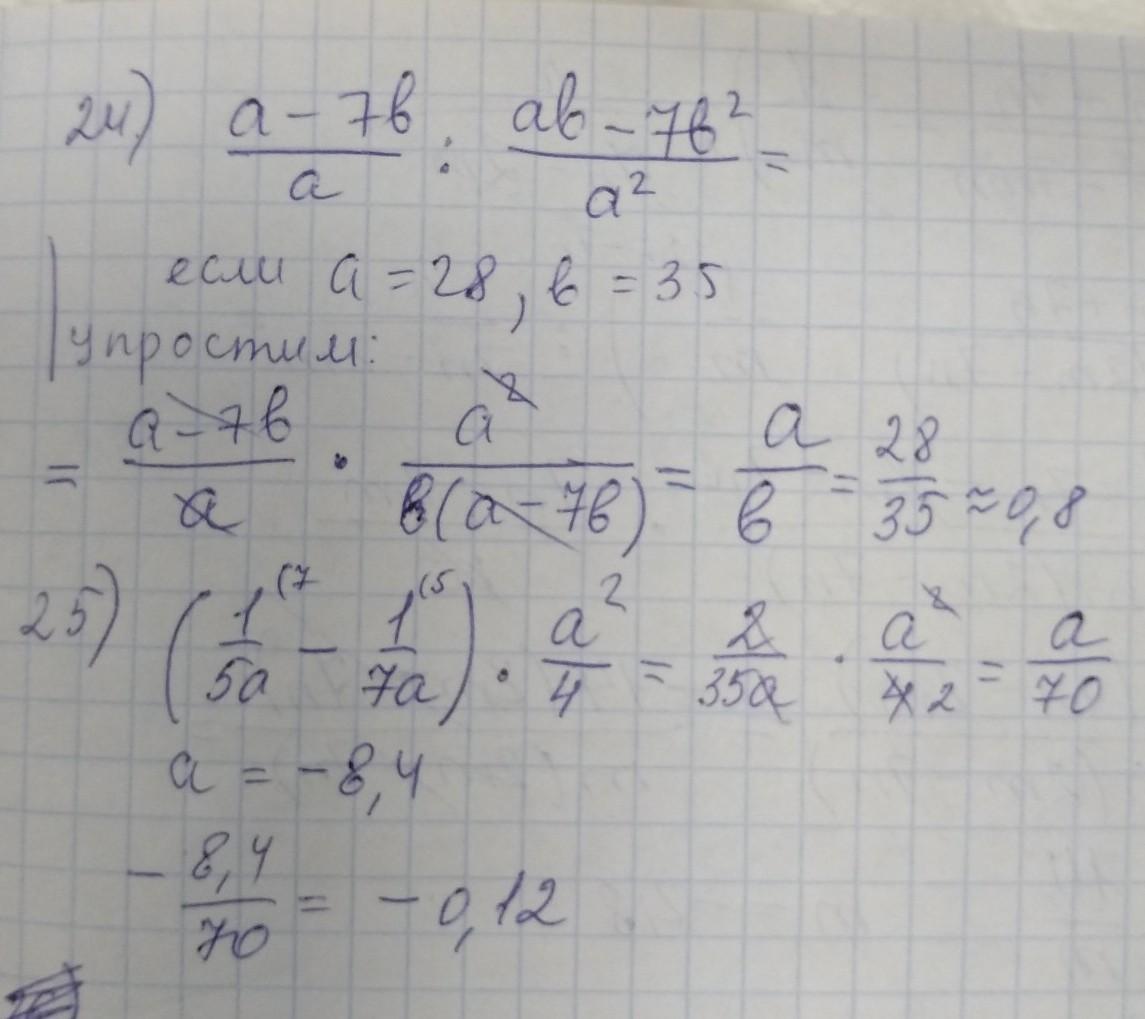 24) (a - 7b)/a : (ab - 7b²)/a² =
если a = 28, b = 35
упростим:
= (a - 7b)/a · a²/(b(a - 7b)) = a/b = 28/35 ≈ 0,8
25) (1/5a (7 - 1/7a (5) · a²/4 = 2/35a · a²/4 2 = a/70
a = -8,4
- 8,4/70 = - 0,12